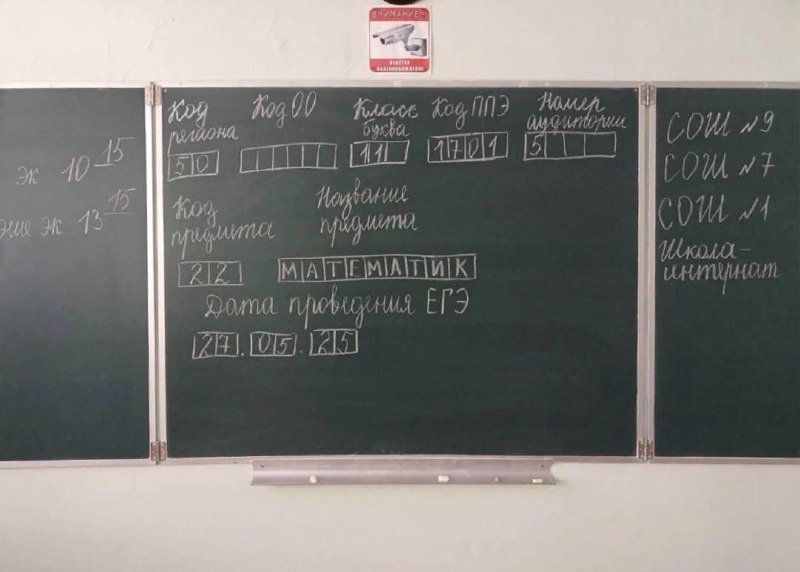 ВНИМАНИЕ!!!
ВЕДЕТСЯ
ВИДЕОНАБЛЮДЕНИЕ
эк 10 15
эк 13 15
Код региона
50
Код ОО
Класс буква
11
Код ППЭ
1701
Номер аудитории
5
Код предмета
22
Название предмета
МАТЕМАТИК
Дата проведения ЕГЭ
27.05.25
СОШ №9
СОШ №7
СОШ №1
Школа-
интернат